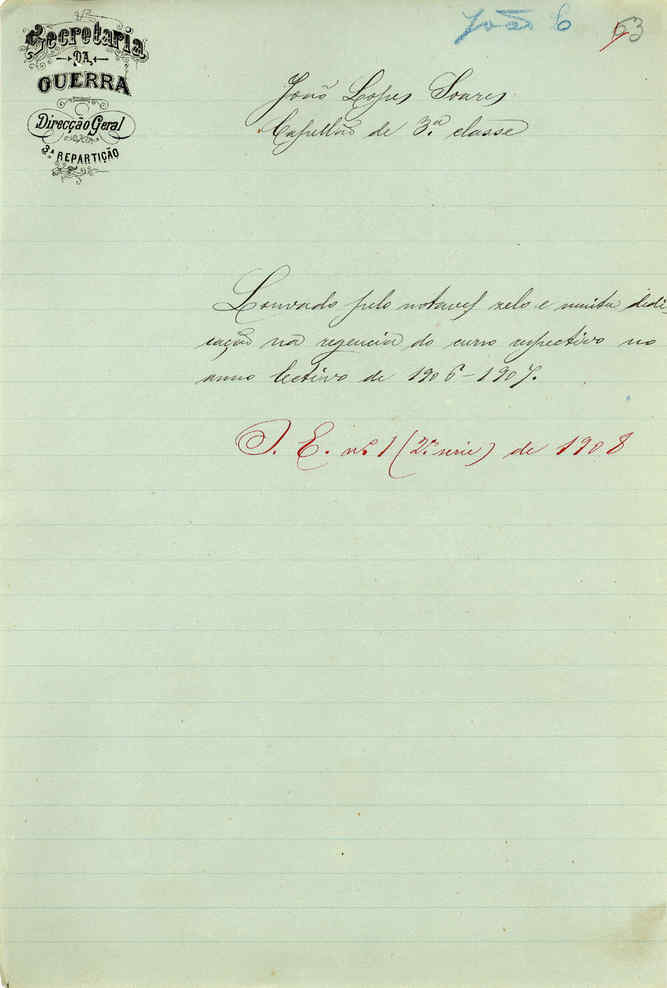 João L 63
Secretaria
DA
GUERRA
Direcção Geral
3.ª REPARTIÇÃO
João Lopes Soares
Capellão de 3.ª classe
Louvado pelo notavel zelo e muita dedi-
cação na regencia do curso respectivo no
anno lectivo de 1906-1907.
O. E. nº 1 (2ª serie) de 1908